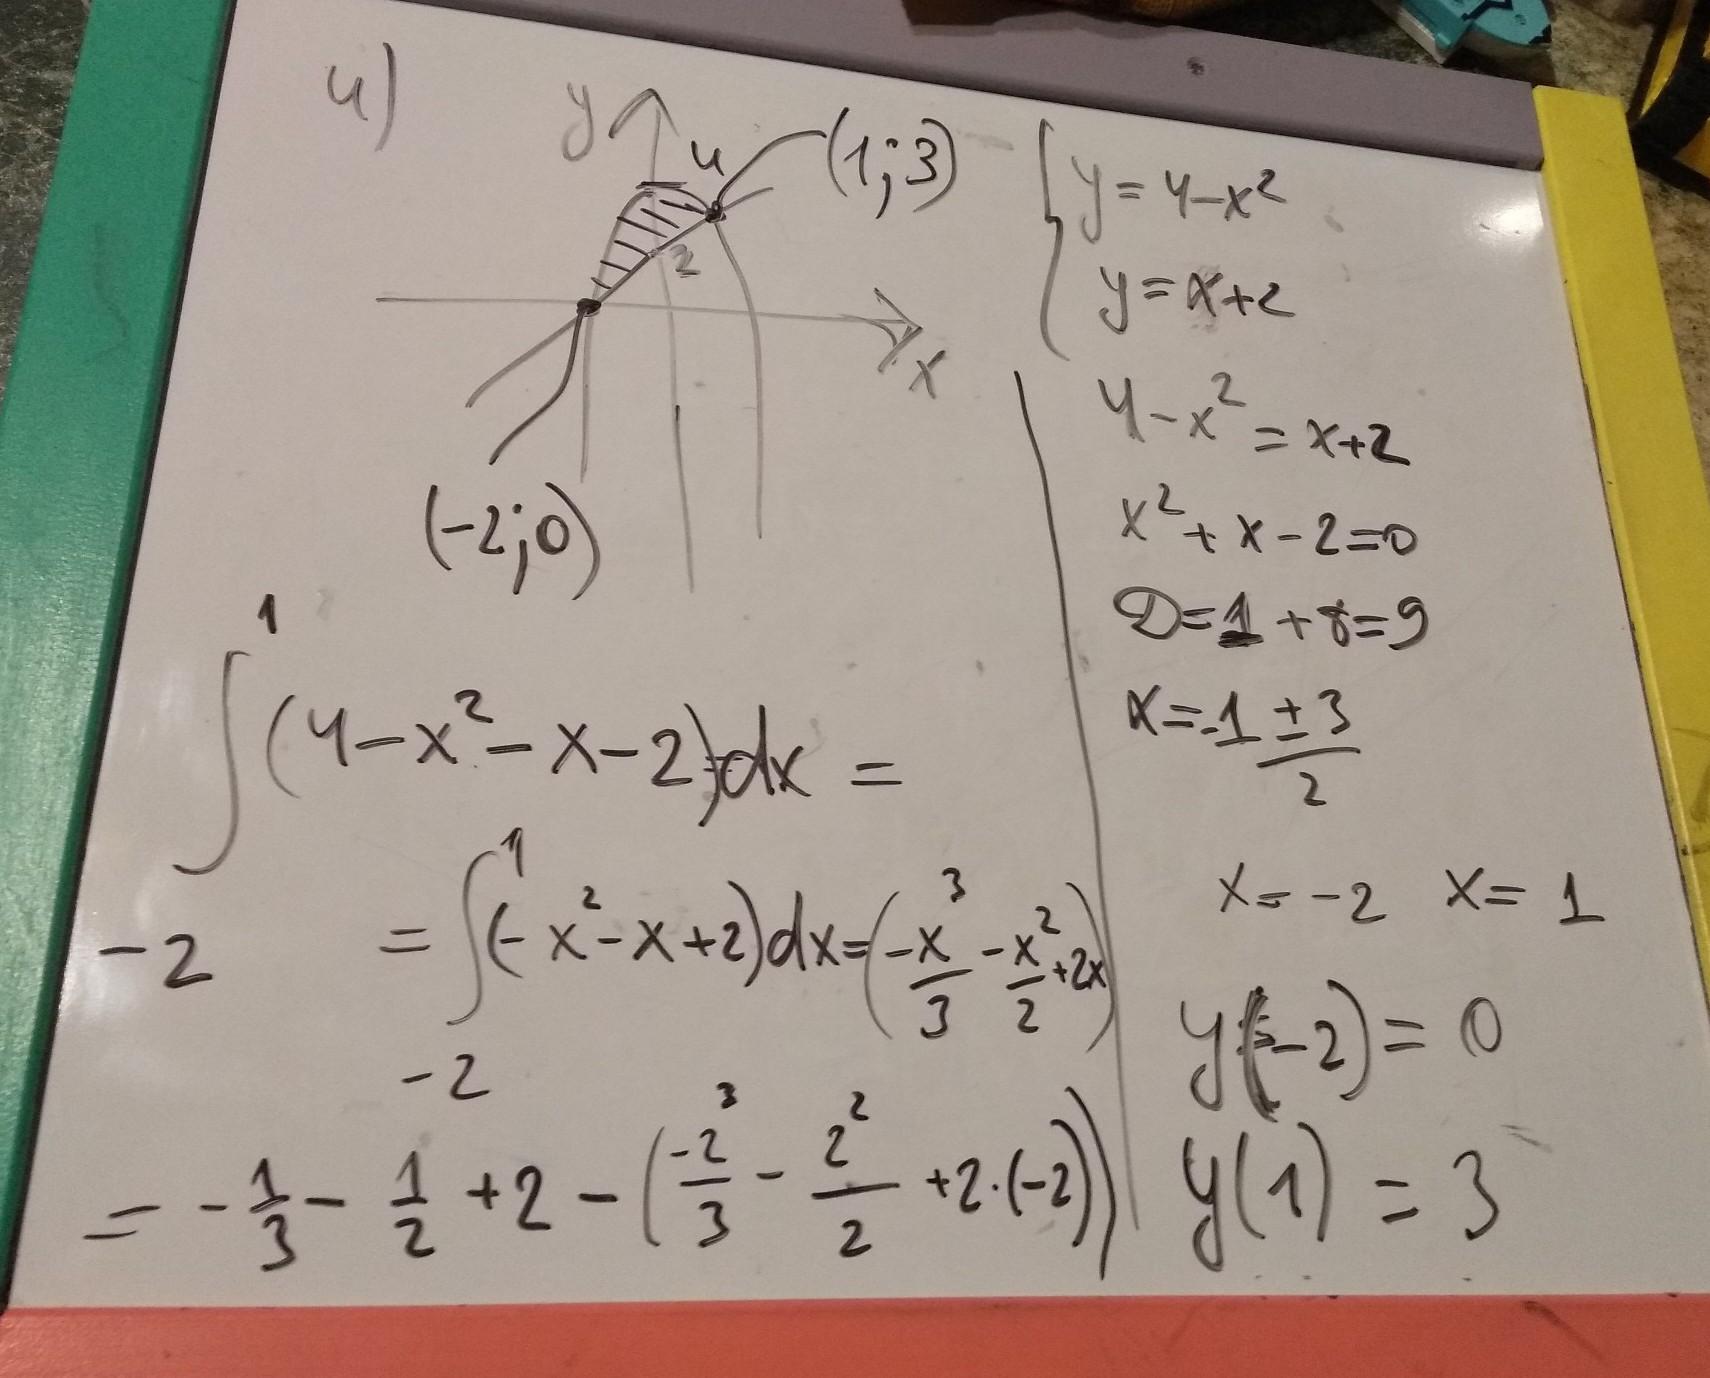 4)
y
4
(1;3)
2
x
(-2;0)
{ y = 4-x²
y = x+2
4-x² = x+2
x²+x-2=0
D=1+8=9
x=-1±3/2
x=-2 x=1
y(-2)=0
y(1)=3
∫₋₂¹(4-x²-x-2)dx=
=∫₋₂¹(-x²-x+2)dx=(-x³/3-x²/2+2x)
=-1/3-1/2+2-(-2³/3-2²/2+2·(-2))